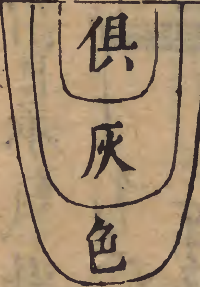 俱灰色